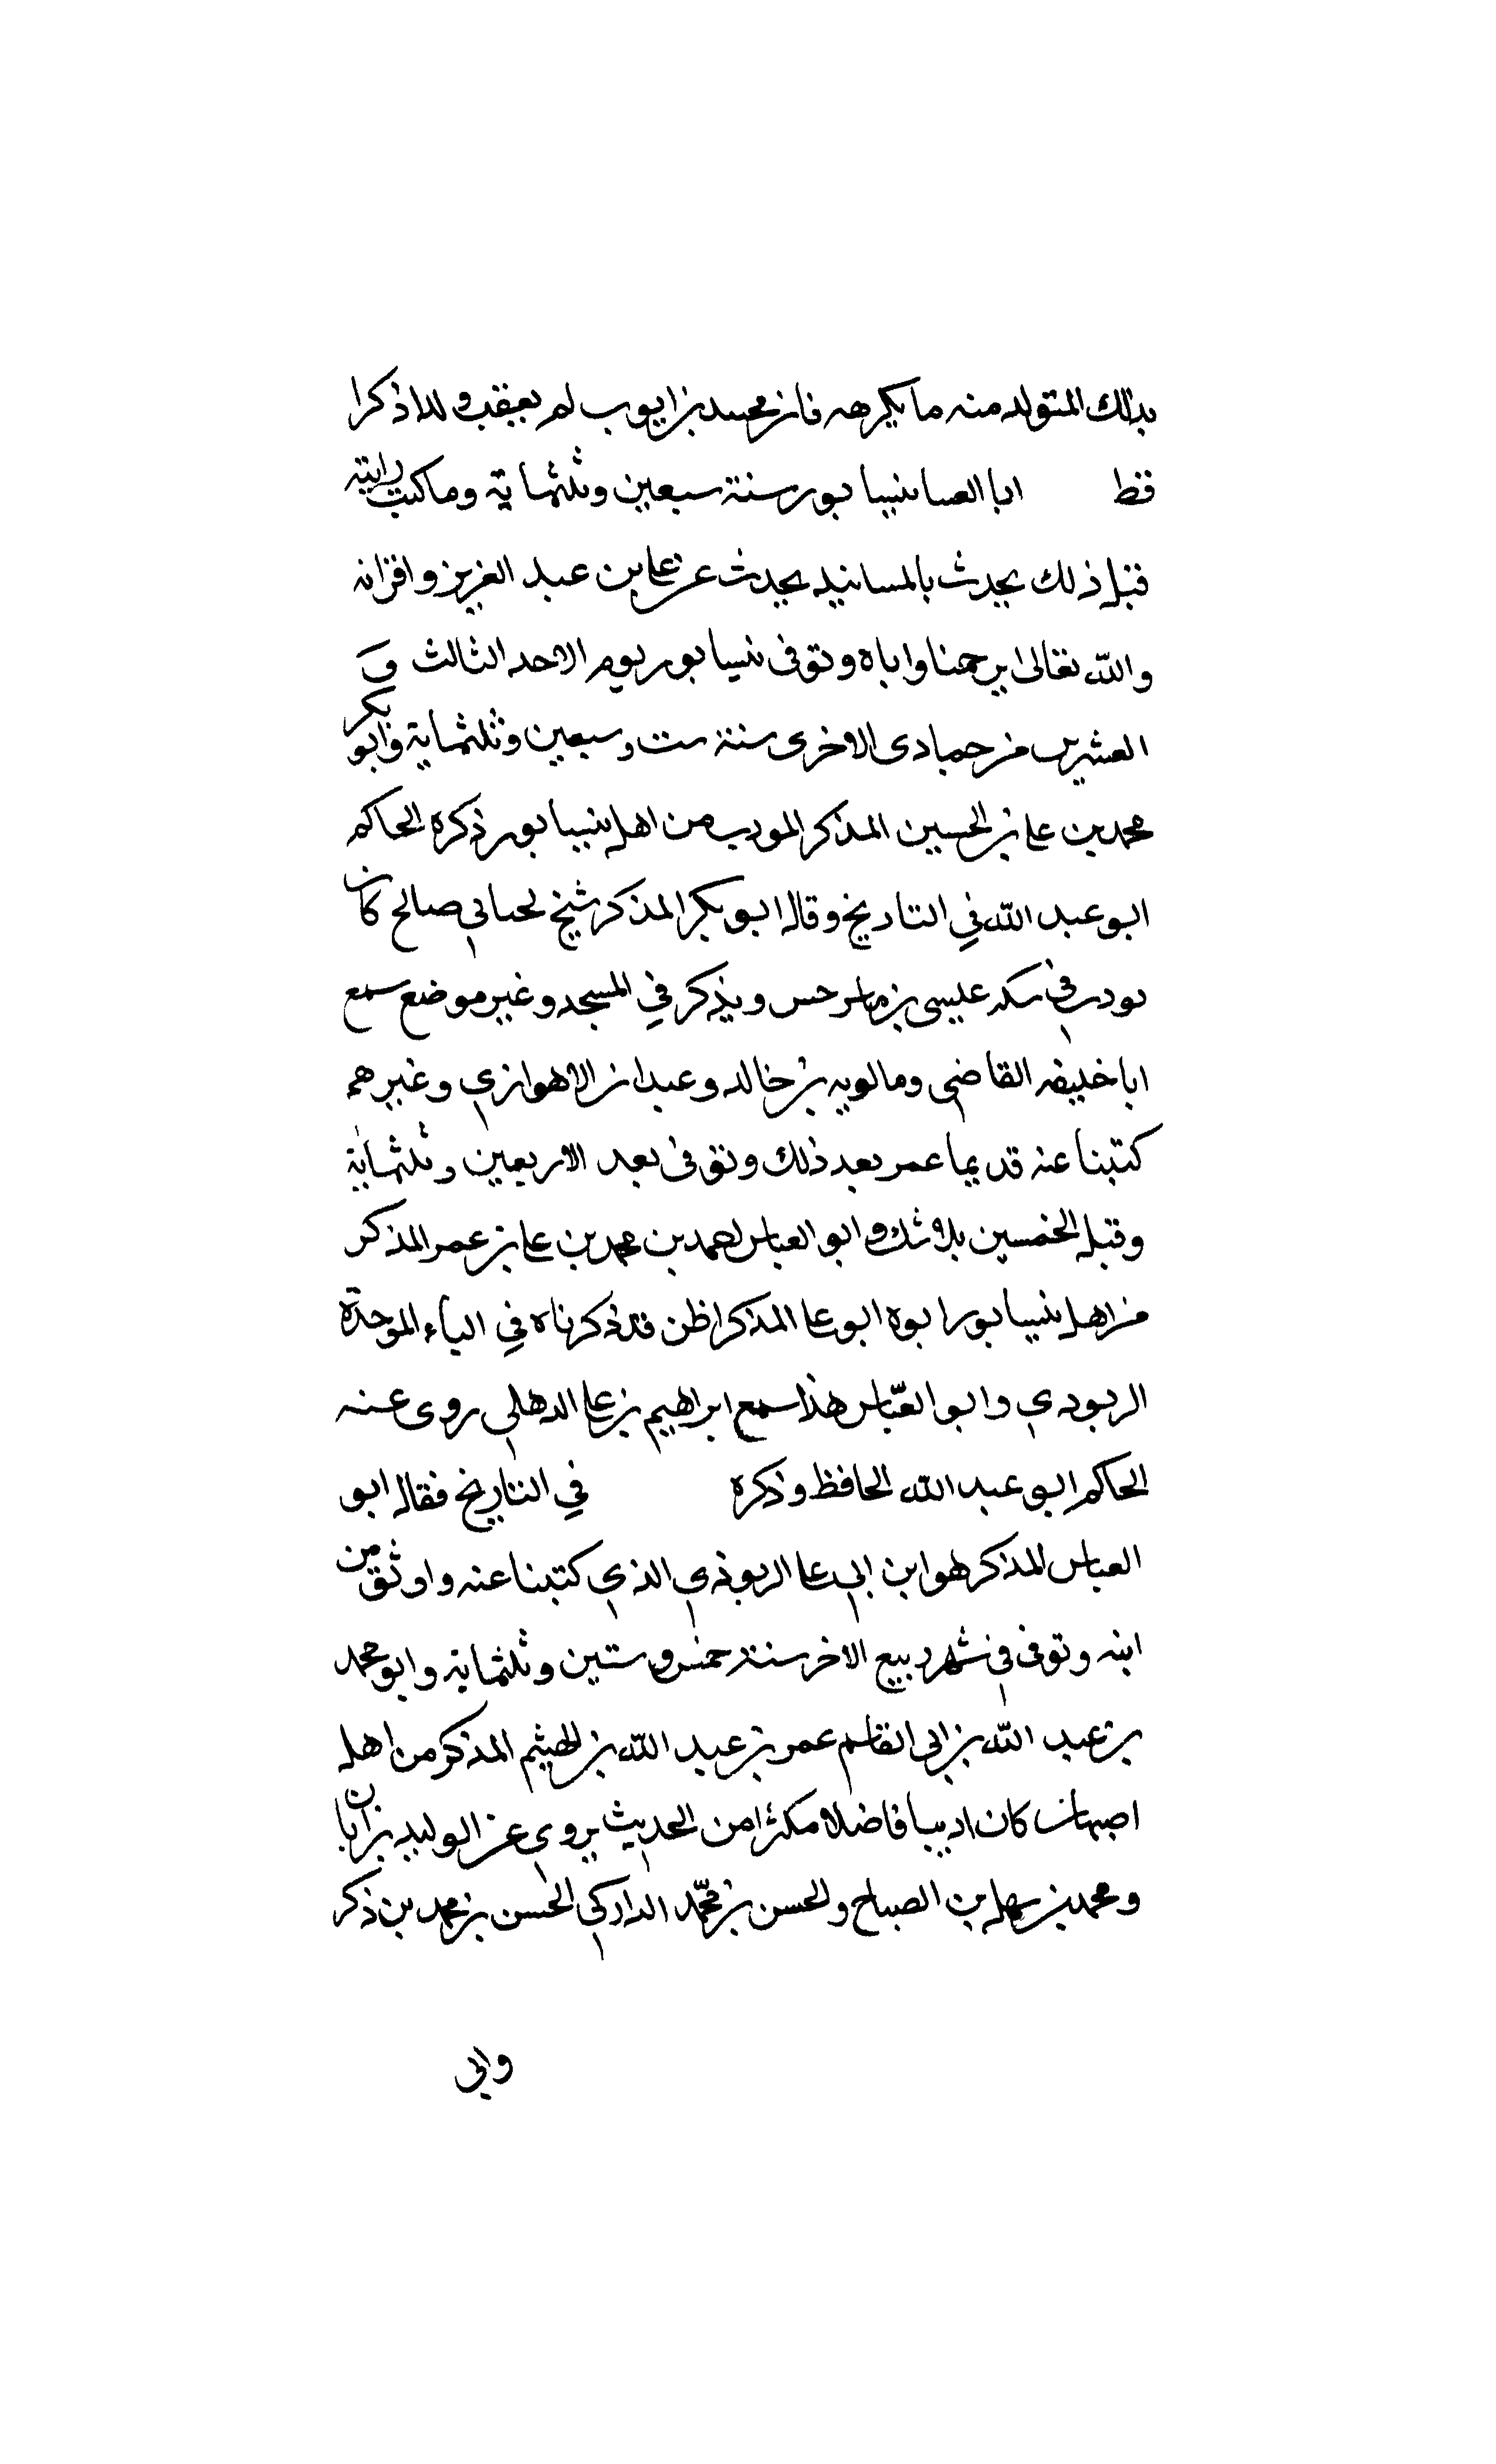 بذلك المتولد منه ما يكرهه فان محمد بن ايوب لم يعقب ولدا ذكرا
قط ابا العبا بنيسابور سنة سبعين وثلثماية وما كنت رايته
قبل ذلك يحدث بالمسانيد يحدث عن على بن عبد العزيز واقرانه
والله تعالى يرحمنا واياه وتوفى بنيسابور يوم الاحد الثالث و
العشرين من جمادى الاخرى سنة ست وسبعين وثلثماية وابو بكر
محمد بن على بن الحسين المذكر المودب من اهل نيسابور ذكره الحاكم
ابو عبد الله في التاريخ وقال ابو بكر المذكر شيخ صالح كان
يودب في سكة عيسى بن ماسرجس ويذكر في المسجد وغير موضع سمع
ابا خليفه القاضي ومالويه بن خالد وعبدان الاهوازي وغيرهم
كتبنا عنه قديما عمر بعد ذلك وتوفى بعد الاربعين وثلثماية
وقبل الخمسين بلا شك وابو العباس احمد بن محمد بن على بن عمر المذكر
من اهل نيسابور ابوه ابو على المذكر اظن قد ذكرناه في الباء الموحدة
الربودي وابو العبّاس هذا سمع ابراهيم بن على الدهلي روى عنه
الحاكم ابو عبد الله الحافظ وذكره في التاريخ فقال ابو
العباس المذكر هو ابن ابي على الربوذي الذي كتبنا عنه واوثق من
ابنه وتوفى في شهر ربيع الاخر سنة خمس وستين وثلثماية وابو محمد
بن عبد الله بن ابى القاسم عمر بن عبد الله بن الهيثم المذكر من اهل
اصبهان كان اديبا فاضلا مكثرا من الحديث يروي عن الوليد بن ابان
ومحمد بن سهل بن الصباح والحسن بن محمّد الداركي الحسن بن محمد بن ذكر
وابى